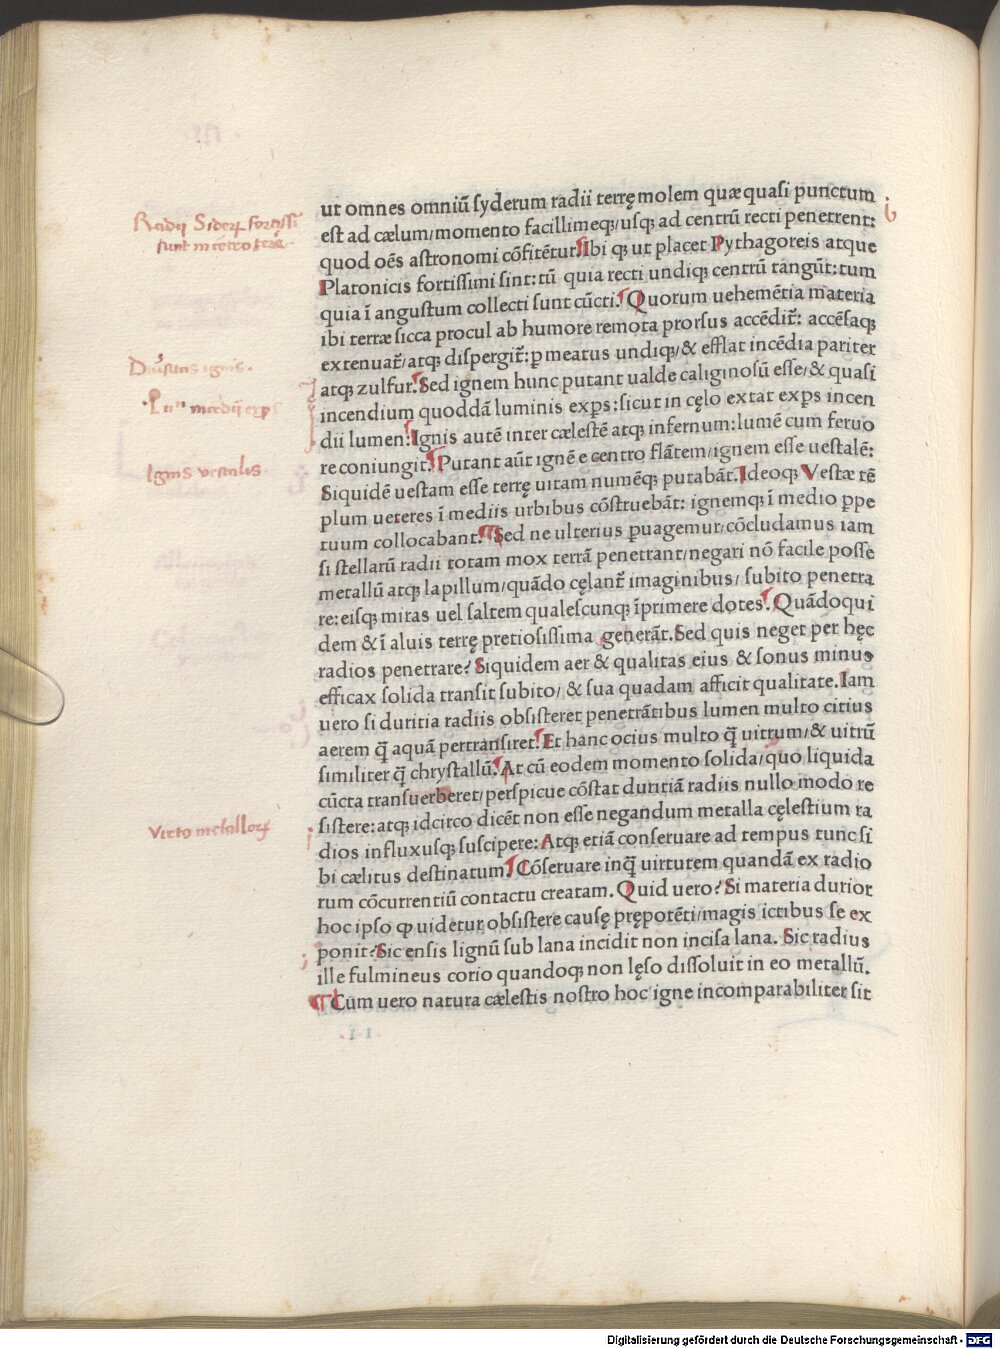 ut omnes omniũ syderum radii terrę molem quæ quasi punctum
est ad cælum/momento facillimeq;/usq; ad centrũ recti penetrent:
quod oẽs astronomi cõfitẽtur. Ibi q; ut placet Pythagoreis atque
Platonicis fortissimi sint: tũ quia recti undiq; centrũ tangũt: tum
quia ĩ angustum collecti sunt cũcti. Quorum uehemẽtia materia
ibi terræ sicca procul ab humore remota prorsus accẽdit̃: accẽsaq;
extenuat̃/atq; dispergit̃: ꝑ meatus undiq;/& efflat incẽdia pariter
atq; zulfur. Sed ignem hunc putant ualde caliginosũ esse/& quasi
incendium quoddã luminis exꝑs: sicut in cęlo extat exꝑs incen
dii lumen: Ignis autẽ inter cælestẽ atq; infernum: lumẽ cum feruo
re coniungit. Putant aũt ignẽ e centro flãtem/ignem esse uestalẽ:
Siquidẽ uestam esse terrę uitam numẽq; putabãt. Ideoq; Vestæ tẽ
plum ueteres ĩ mediis urbibus cõstruebãt: ignemq; ĩ medio ꝑpe
tuum collocabant. Sed ne ulterius ꝑuagemur/cõcludamus iam
si stellarũ radii totam mox terrã penetrant/negari nõ facile posse
metallũ atq; lapillum/quãdo cęlant̃ imaginibus/ subito penetra
re: eisq; miras uel saltem qualescunq; ĩprimere dotes. Quãdoqui
dem & ĩ aluis terrę pretiosissima generãt. Sed quis neget per hęc
radios penetrare? Siquidem aer & qualitas eius & sonus minus
efficax solida transit subito/ & sua quadam afficit qualitate. Iam
uero si duritia radiis obsisteret penetrãtibus lumen multo citius
aerem q̃ aquã pertransiret. Et hanc ocius multo q̃ uitrum/& uitrũ
similiter q̃ chrystallũ. At cũ eodem momento solida/quo liquida
cũcta transuerberet/perspicue cõstat duritiã radiis nullo modo re
sistere: atq; idcirco dicẽt non esse negandum metalla cęlestium ra
dios influxusq; suscipere: Atq; etiã conseruare ad tempus tunc si
bi cælitus destinatum. Cõseruare inq̃ uirtutem quandã ex radio
rum cõcurrentiũ contactu creatam. Quid uero? Si materia durior
hoc ipso ꝙ uidetur obsistere causę prępotẽti/magis ictibus se ex
ponit? Sic ensis lignũ sub lana incidit non incisa lana. Sic radius
ille fulmineus corio quandoq; non lęso dissoluit in eo metallũ.
Cum uero natura cælestis nostro hoc igne incomparabiliter sit
Radij Siderꝝ fortissi
sunt in cetro terræ
Ignis vestalis
Virto metalloꝝ
Digitalisierung gefördert durch die Deutsche Forschungsgemeinschaft - DFG